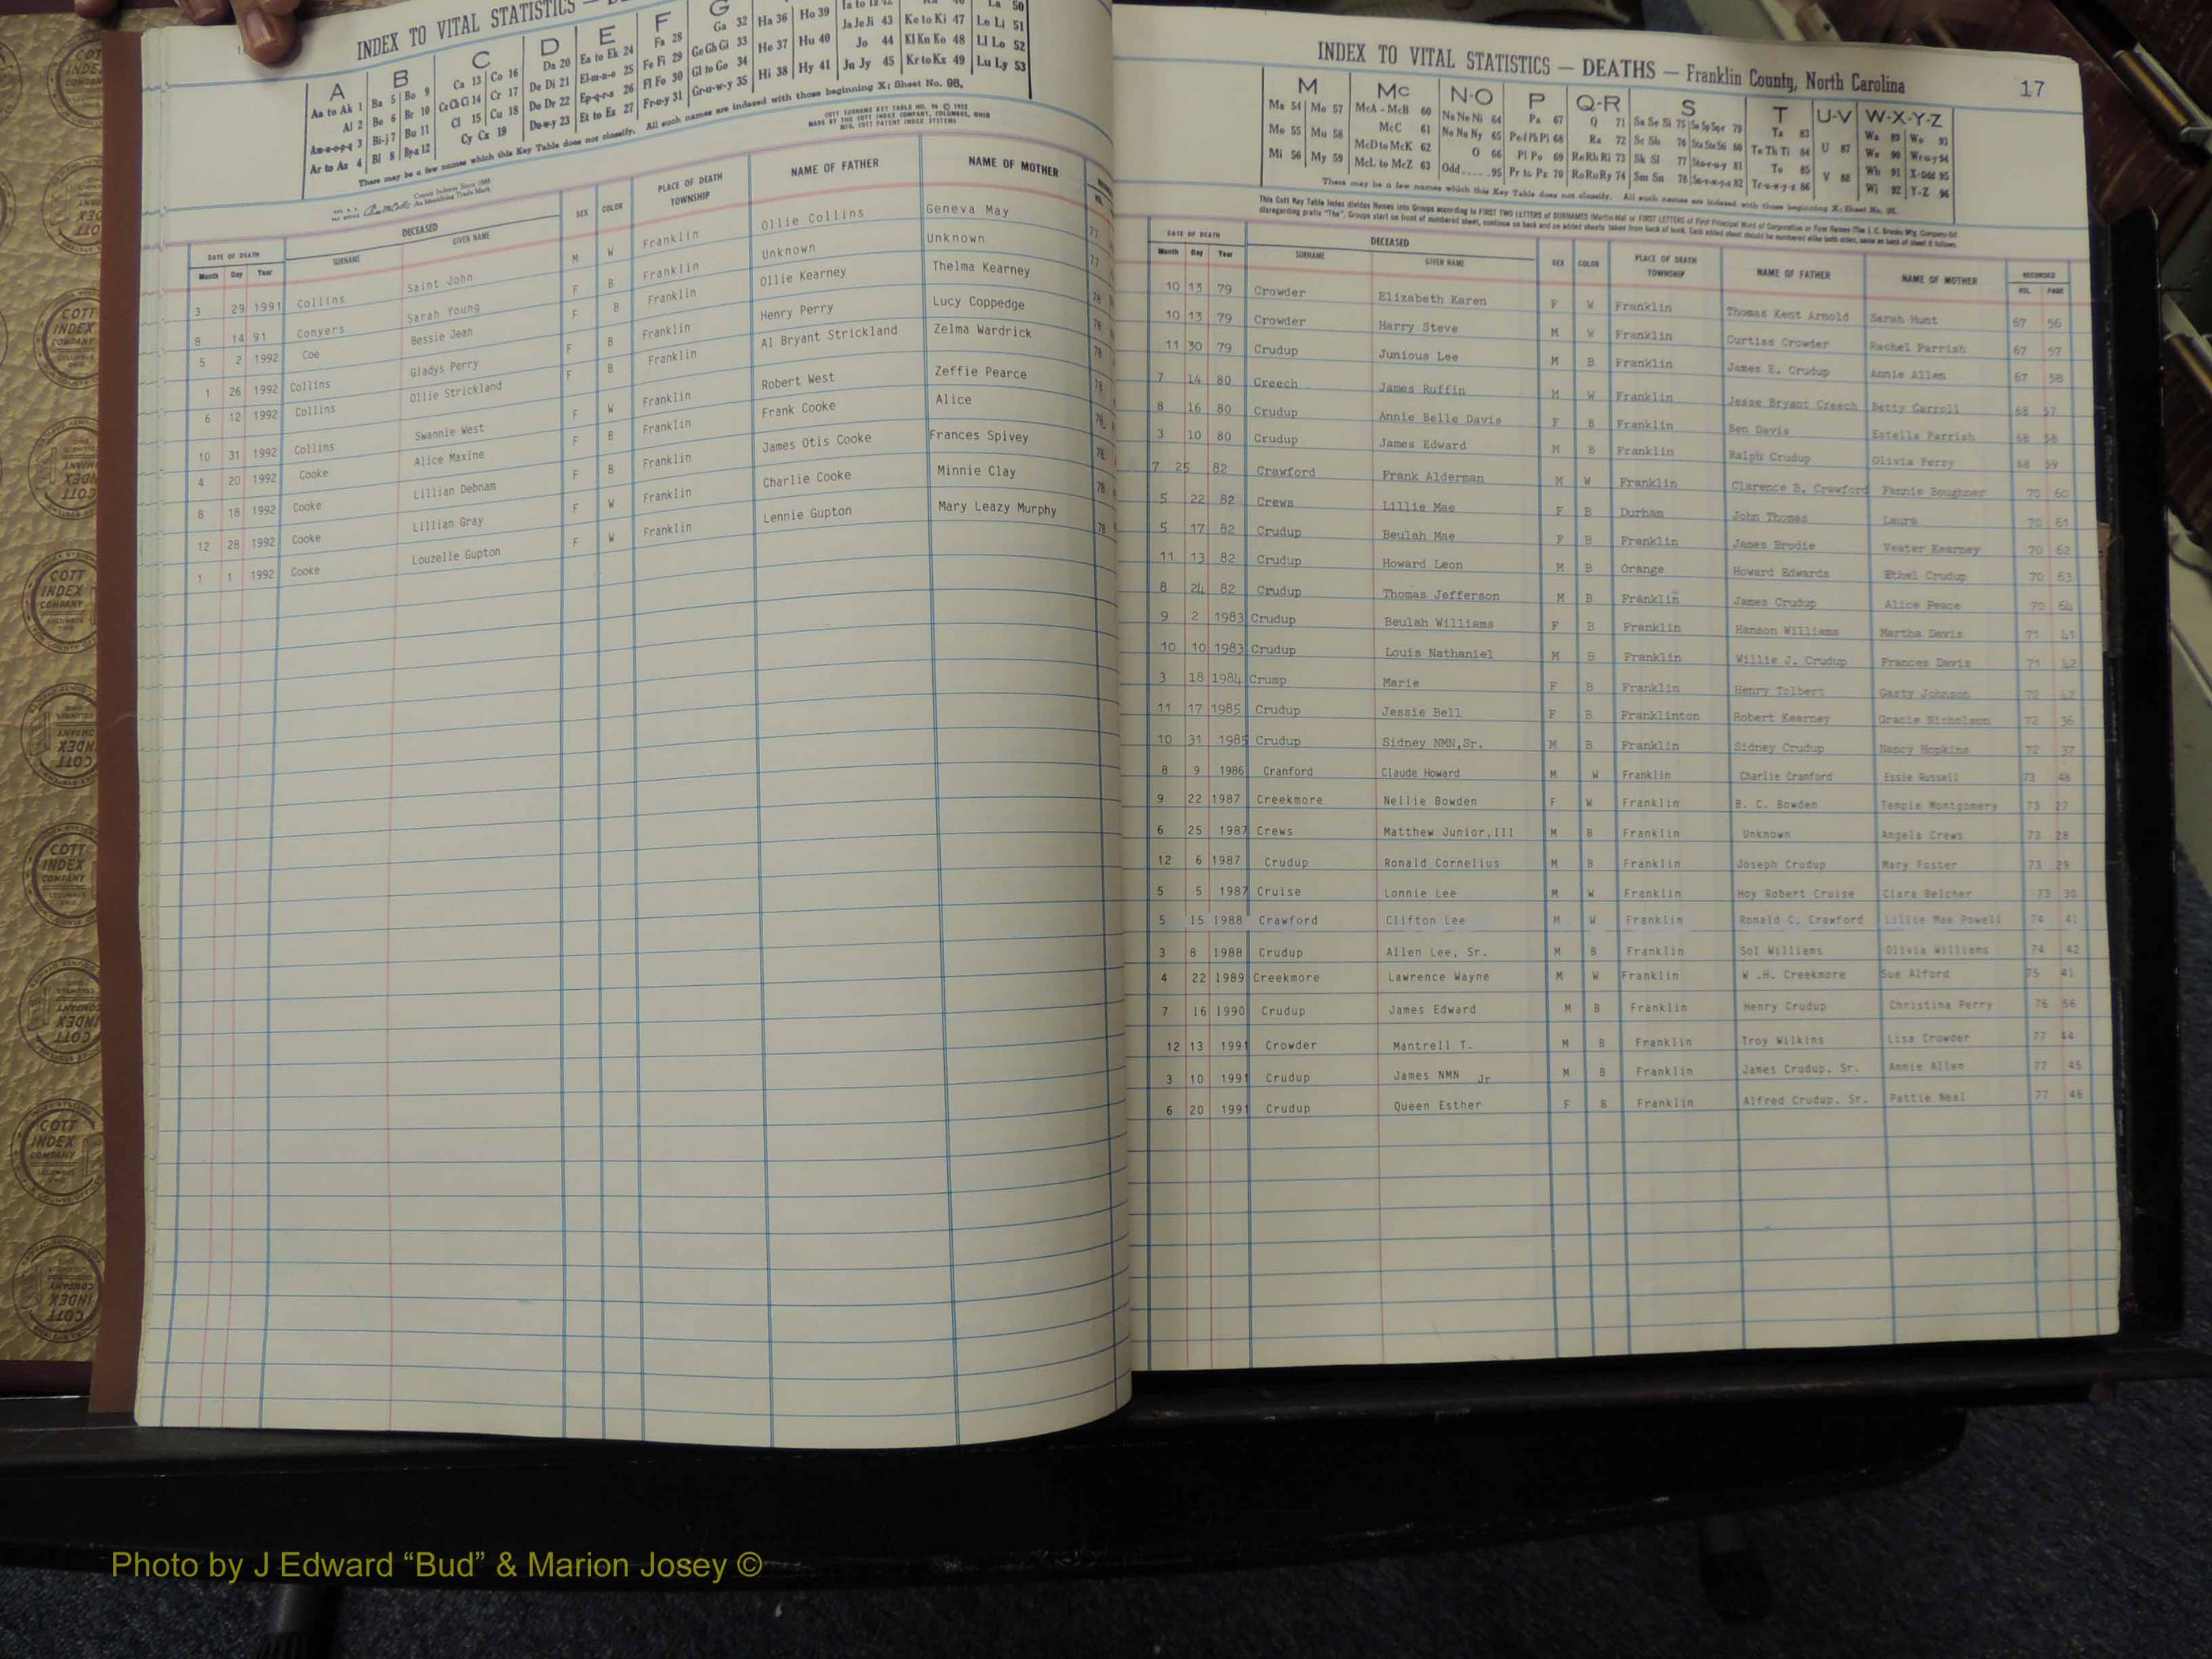 INDEX TO VITAL STATISTICS —
A B C D E F G
Aa to Ak 1 Ba 5 Bo 9 Ca 13 Co 16 Da 20 Ea to Ek 24 Fa 28 Ga 32 Ha 36 Ho 39
Al 2 Be 6 Br 10 Ce Ch Ci 14 Cr 17 De Di 21 El-m-n-o 25 Fe Fi 29 Ge Gh Gi 33 He 37 Hu 40 Ja Je Ji 43 Ke to Ki 47 Le Li 51
Am-n-o-p-q 3 Bi-j 7 Bu 11 Cl 15 Cu 18 Do Dr 22 Ep-q-r-s 26 Fl Fo 30 Gl to Go 34 Hi 38 Hy 41 Jo 44 Kl Kn Ko 48 Ll Lo 52
Ar to Az 4 Bl 8 By-z 12 Cy Cz 19 Du-w-y 23 Et to Ez 27 Fr-u-y 31 Gr-u-w-y 35 Ju Jy 45 Kr to Kz 49 Lu Ly 53
There may be a few names which this Key Table does not classify. All such names are indexed with those beginning X; Sheet No. 95.
COTT SURNAME KEY TABLE
MADE BY THE COTT INDEX COMPANY, COLUMBUS, OHIO
DATE OF DEATH DECEASED SEX COLOR PLACE OF DEATH TOWNSHIP NAME OF FATHER NAME OF MOTHER
Month Day Year SURNAME GIVEN NAME
3 29 1991 Collins Saint John M W Franklin Ollie Collins Geneva May 77
8 14 91 Conyers Sarah Young F B Franklin Unknown Unknown 77
5 2 1992 Coe Bessie Jean F B Franklin Ollie Kearney Thelma Kearney 78
1 26 1992 Collins Gladys Perry F B Franklin Henry Perry Lucy Coppedge 78
6 12 1992 Collins Ollie Strickland F B Franklin Al Bryant Strickland Zelma Wardrick 78
10 31 1992 Collins Swannie West F W Franklin Robert West Zeffie Pearce 78
4 20 1992 Cooke Alice Maxine F B Franklin Frank Cooke Alice 78
8 18 1992 Cooke Lillian Debnam F B Franklin James Otis Cooke Frances Spivey 78
12 28 1992 Cooke Lillian Gray F W Franklin Charlie Cooke Minnie Clay 78
1 1 1992 Cooke Louzelle Gupton F W Franklin Lennie Gupton Mary Leazy Murphy 78
INDEX TO VITAL STATISTICS — DEATHS — Franklin County, North Carolina 17
M Mc N-O P Q-R S T U-V W-X-Y-Z
Ma 54 Mo 57 McA - McB 60 Na Ne Ni 64 Pa 67 Q 71 Sa Se Si 75 So Sp Sq-r 79 Ta 83 U 87 Wa 89 Wo 93
Me 55 Mu 58 McC 61 No Nu Ny 65 Pe-f Ph Pi 68 Ra 72 Sc Sh 76 Sta Ste Sti 80 Te Th Ti 84 V 88 We 90 Wr-u-y 94
Mi 56 My 59 McD to McK 62 O 66 Pl Po 69 Re Rh Ri 73 Sk Sl 77 Sto-r-u-y 81 To 85 Wh 91 X-Odd 95
McL to McZ 63 Odd.....95 Pr to Pz 70 Ro Ru Ry 74 Sm Sn 78 Su-v-w-y-z 82 Tr-u-w-y-z 86 Wi 92 Y-Z 96
There may be a few names which this Key Table does not classify. All such names are indexed with those beginning X; Sheet No. 95.
DATE OF DEATH DECEASED SEX COLOR PLACE OF DEATH TOWNSHIP NAME OF FATHER NAME OF MOTHER RECORDED
Month Day Year SURNAME GIVEN NAME VOL. PAGE
10 13 79 Crowder Elizabeth Karen F W Franklin Thomas Kent Arnold Sarah Hunt 67 56
10 13 79 Crowder Harry Steve M W Franklin Curtiss Crowder Rachel Parrish 67 57
11 30 79 Crudup Junious Lee M B Franklin James E. Crudup Annie Allen 67 58
7 14 80 Creech James Ruffin M W Franklin Jesse Bryant Creech Betty Carroll 68 57
8 16 80 Crudup Annie Belle Davis F B Franklin Ben Davis Estelle Parrish 68 58
3 10 80 Crudup James Edward M B Franklin Ralph Crudup Olivia Perry 68 59
7 25 82 Crawford Frank Alderman M W Franklin Clarence B. Crawford Fannie Boughner 70 60
5 22 82 Crews Lillie Mae F B Durham John Thomas Laura 70 61
5 17 82 Crudup Beulah Mae F B Franklin James Brodie Vester Kearney 70 62
11 13 82 Crudup Howard Leon M B Orange Howard Edwards Ethel Crudup 70 63
8 24 82 Crudup Thomas Jefferson M B Franklin James Crudup Alice Peace 70 64
9 2 1983 Crudup Beulah Williams F B Franklin Hanson Williams Martha Davis 71 41
10 10 1983 Crudup Louis Nathaniel M B Franklin Willie J. Crudup Frances Davis 71 42
3 18 1984 Crump Marie F B Franklin Henry Tolbert Gasty Johnson 72 42
11 17 1985 Crudup Jessie Bell F B Franklinton Robert Kearney Gracie Nicholson 72 36
10 31 1985 Crudup Sidney NMN,Sr. M B Franklin Sidney Crudup Nancy Hopkins 72 37
8 9 1986 Cranford Claude Howard M W Franklin Charlie Cranford Essie Russell 73 48
9 22 1987 Creekmore Nellie Bowden F W Franklin B. C. Bowden Temple Montgomery 73 27
6 25 1987 Crews Matthew Junior,III M B Franklin Unknown Angela Crews 73 28
12 6 1987 Crudup Ronald Cornelius M B Franklin Joseph Crudup Mary Foster 73 29
5 5 1987 Cruise Lonnie Lee M W Franklin Hoy Robert Cruise Clara Belcher 73 30
5 15 1988 Crawford Clifton Lee M W Franklin Ronald C. Crawford Lillie Mae Powell 74 41
3 8 1988 Crudup Allen Lee, Sr. M B Franklin Sol Williams Olivia Williams 74 42
4 22 1989 Creekmore Lawrence Wayne M W Franklin W .H. Creekmore Sue Alford 75 41
7 16 1990 Crudup James Edward M B Franklin Henry Crudup Christina Perry 76 56
12 13 1991 Crowder Mantrell T. M B Franklin Troy Wilkins Lisa Crowder 77 44
3 10 1991 Crudup James NMN Jr M B Franklin James Crudup, Sr. Annie Allen 77 45
6 20 1991 Crudup Queen Esther F B Franklin Alfred Crudup, Sr. Pattie Neal 77 46
COTT INDEX COMPANY COLUMBUS OHIO
Photo by J Edward “Bud” & Marion Josey ©